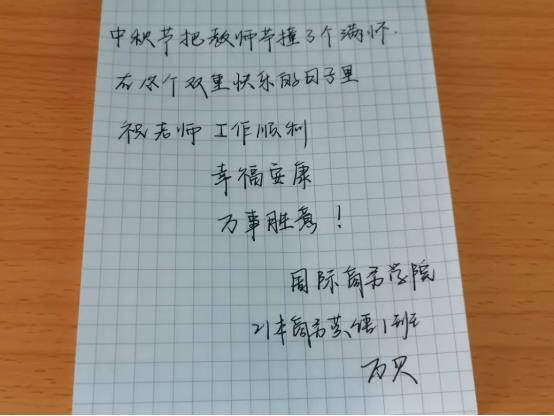 中秋节把教师节撞了个满怀.
在这个双重快乐的日子里
祝老师 工作顺利
幸福安康
万事胜意!
国际商务学院
21本商务英语1班
万贝